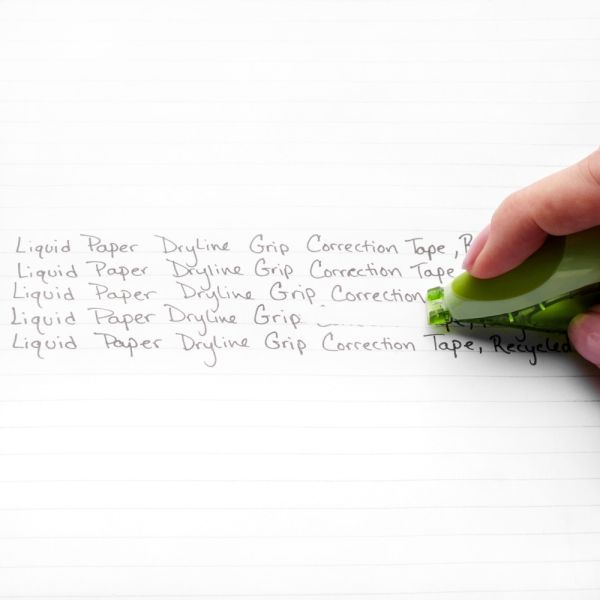 Liquid Paper DryLine Grip Correction Tape, R
Liquid Paper Dryline Grip Correction Tape
Liquid Paper Dryline Grip Correction
Liquid Paper DryLine Grip
Liquid Paper Dryline Grip Correction Tape, Recycled